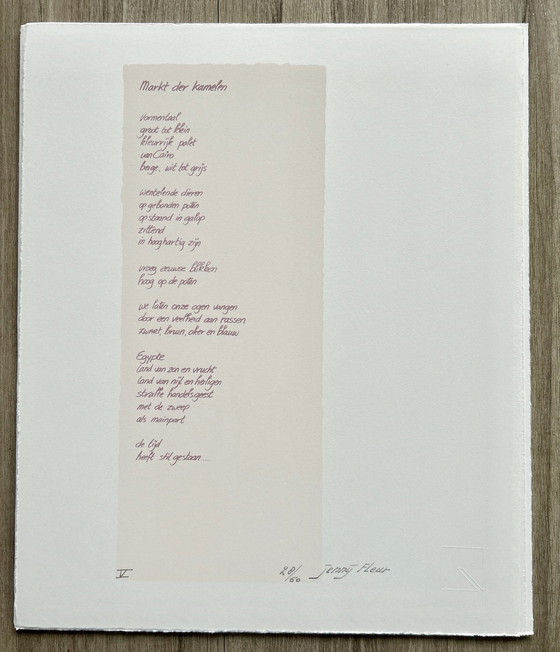 Markt der kamelen
vormentaal
groot tot klein
kleurrijk palet
van Cairo
beige, wit tot grijs
wentelende dieren
opgebonden poten
opstaand in galop
zittend
in hooghartig zijn
vroeg eeuwse blikken
hoog op de poten
we laten onze ogen vangen
door een veelheid aan rassen
zwart, bruin, oker en blauw
Egypte
land van zon en vrucht
land van nijl en heiligen
straffe handelsgeest
met de zweep
als
de tijd
heeft stil gestaan....
V 28/60 Jenny Fleur